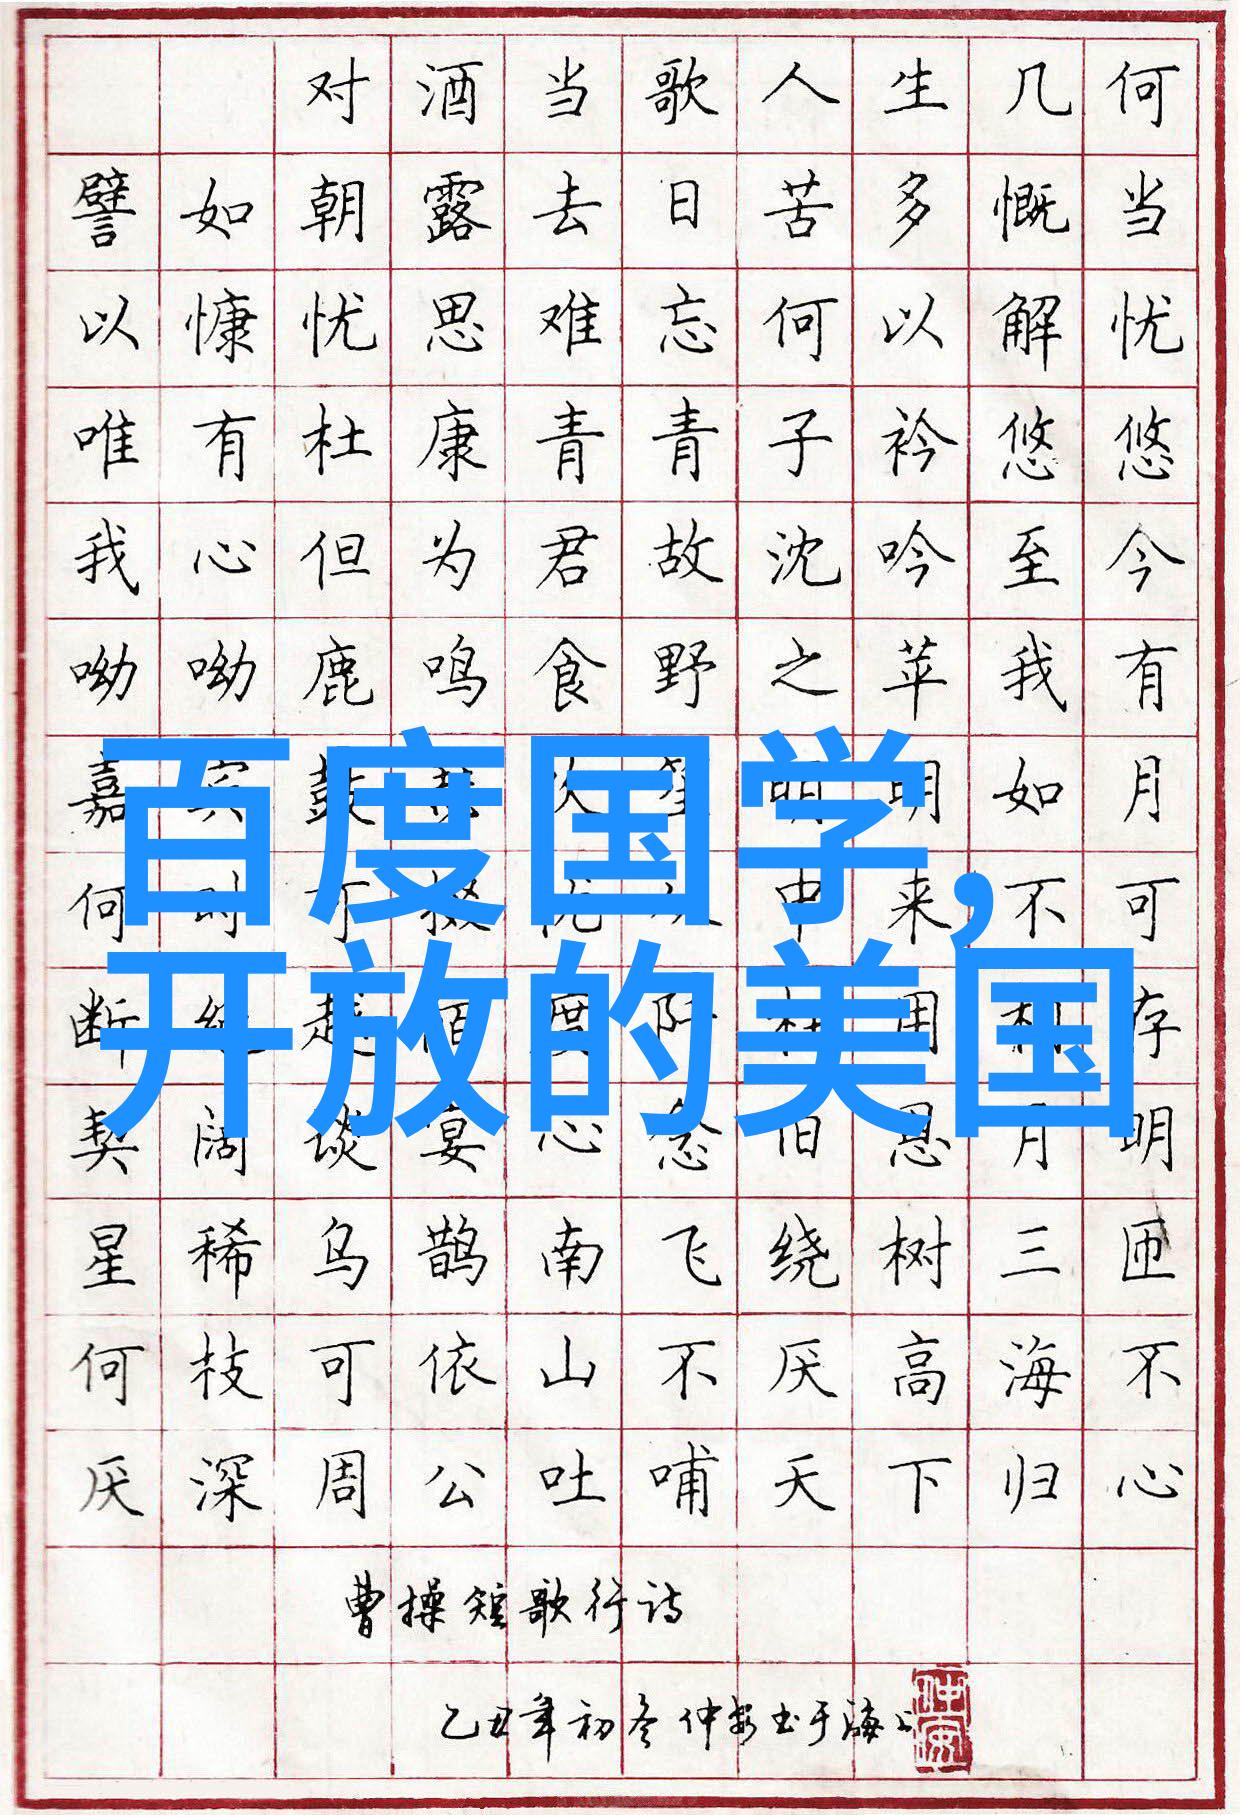 对酒当歌人生几何
譬如朝露去日苦多慨当
以慷忧思难忘何以解忧
唯有杜康青青子衿悠悠
我心但为君故沈吟至今
呦呦鹿鸣食野之苹我有
嘉宾鼓瑟吹笙明明如月
百度国学,
何时可掇忧从中来不可
开放的美国
断绝越陌度阡枉用相存
契阔谈宴心念旧恩月明
星稀乌鹊南飞绕树三匝
何枝可依山不厌高海不
厌深周公吐哺天下归心
曹操短歌行诗
乙丑年初冬仲安书于海上
仲安